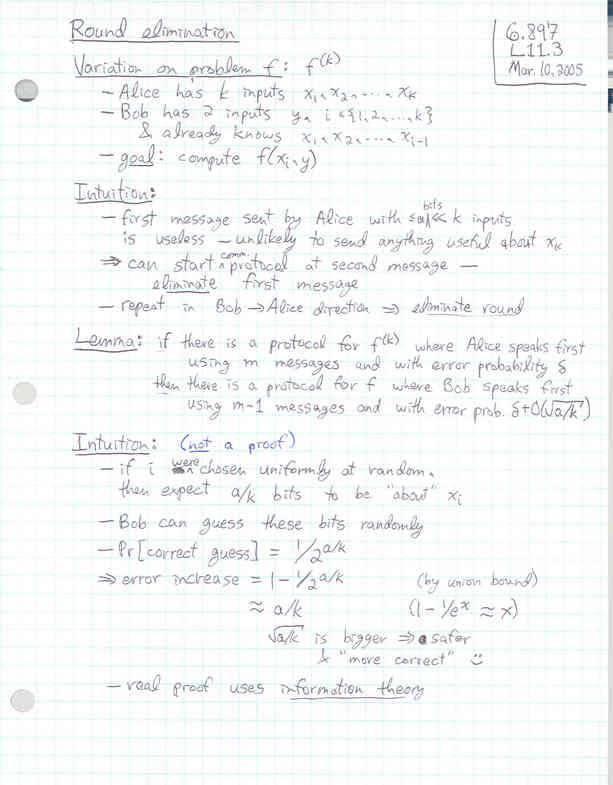 Round elimination
6.897
L11.3
Mar. 10, 2005
Variation on problem f: f^(k)
– Alice has k inputs x₁, x₂, ..., xₖ
– Bob has 2 inputs y, i ∈ {1, 2, ..., k}
& already knows x₁, x₂, ..., xᵢ₋₁
– goal: compute f(xᵢ, y)
Intuition:
– first message sent by Alice with ≤a bits ≪ k inputs
is useless – unlikely to send anything useful about xᵢ
⇒ can start comm. protocol at second message –
eliminate first message
– repeat in Bob → Alice direction ⇒ eliminate round
Lemma: if there is a protocol for f^(k) where Alice speaks first
using m messages and with error probability δ
then there is a protocol for f where Bob speaks first
using m-1 messages and with error prob. δ+O(√a/k)
Intuition: (not a proof)
– if i were chosen uniformly at random,
then expect a/k bits to be "about" xᵢ
– Bob can guess these bits randomly
– Pr[correct guess] = 1/2^a/k
⇒ error increase = 1 – 1/2^a/k (by union bound)
≈ a/k (1 – 1/e^x ≈ x)
√a/k is bigger ⇒ safer
& "more correct" ☺
– real proof uses information theory